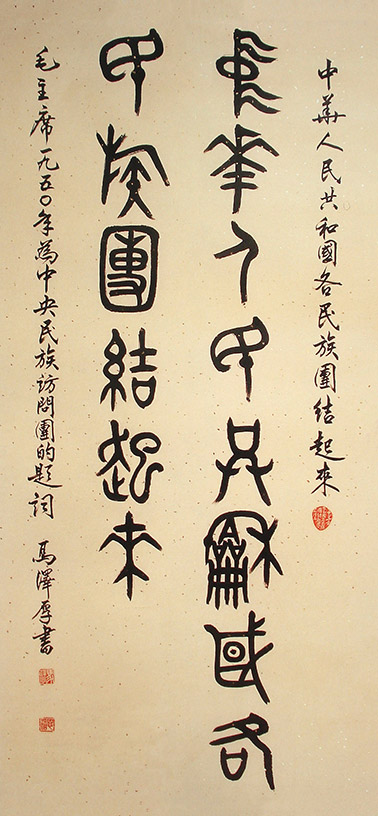 中華人民共和國各民族團結起來
中華人民共龢國各
民族團結起來
毛主席一九五〇年為中央民族訪問團的題詞 馬澤厚書